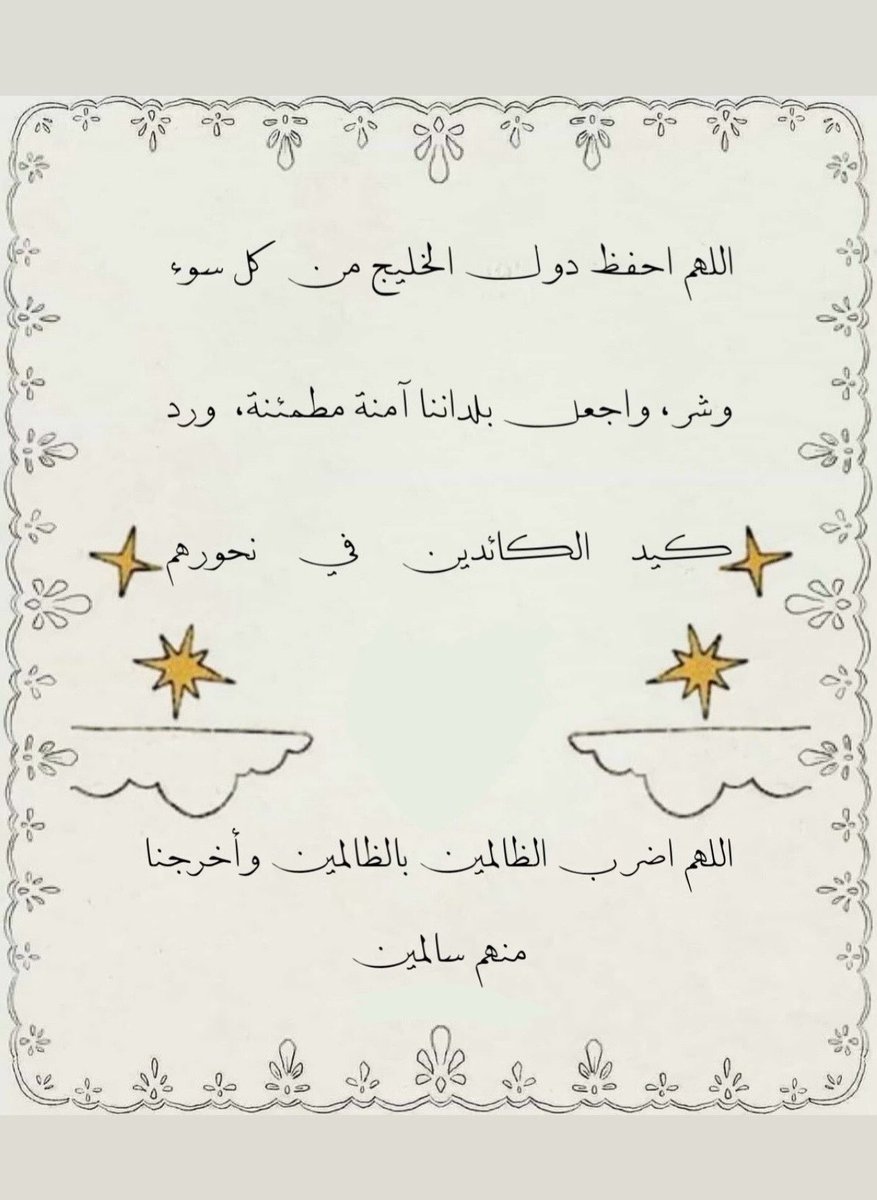 اللهم احفظ دول الخليج من كل سوء
وشر، واجعل بلداننا آمنة مطمئنة، ورد
كيد الكائدين في نحورهم
اللهم اضرب الظالمين بالظالمين وأخرجنا
منهم سالمين